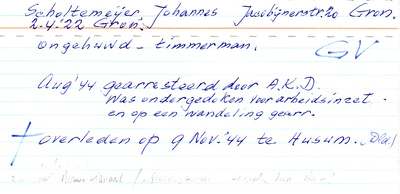 Scholtemeijer, Johannes Jacobijnerstr. 20 Gron.
2-4-'22 Gron.
ongehuwd - timmerman.
GV
Aug '44 gearresteerd door A.K.D.
Was ondergedoken voor arbeidsinzet.
en op een wandeling gearr.
† overleden op 9 Nov. '44 te Husum.